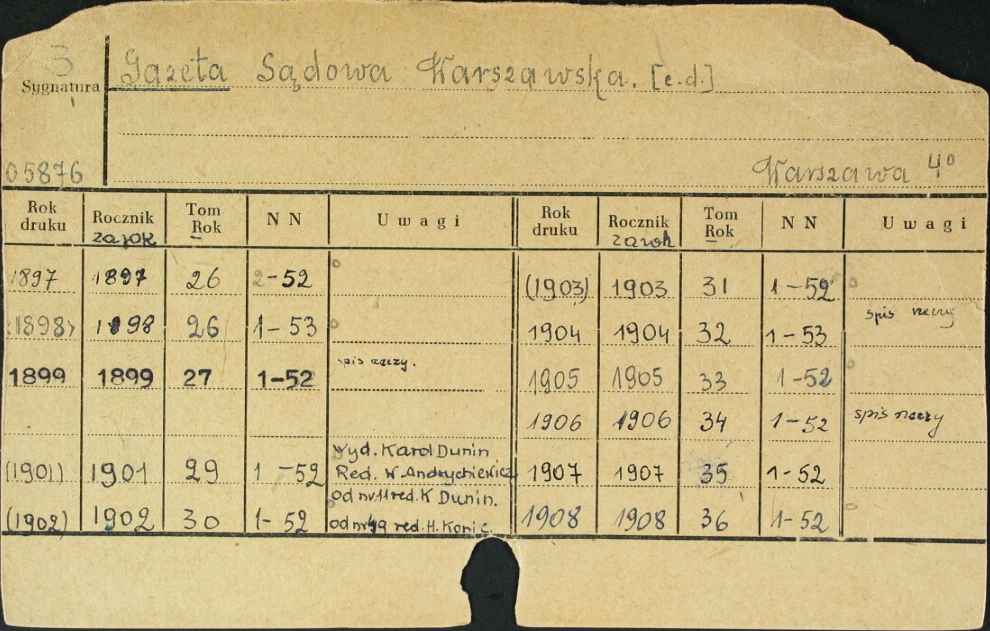 3
Sygnatura
Gazeta Sądowa Warszawska. [c.d.]
05876
Warszawa 4°
Rok druku Rocznik za rok Tom Rok N N Uwagi Rok druku Rocznik za rok Tom Rok N N Uwagi
1897 1897 26 2-52 (1903) 1903 31 1-52
(1898) 1898 26 1-53 1904 1904 32 1-53 spis rzeczy
1899 1899 27 1-52 spis rzeczy. 1905 1905 33 1-52
1906 1906 34 1-52 spis rzeczy
(1901) 1901 29 1-52 wyd. Karol Dunin
Red. W. Andrychiewicz 1907 1907 35 1-52
od nr 11 red. K Dunin.
(1902) 1902 30 1-52 red. H. Konic. 1908 1908 36 1-52